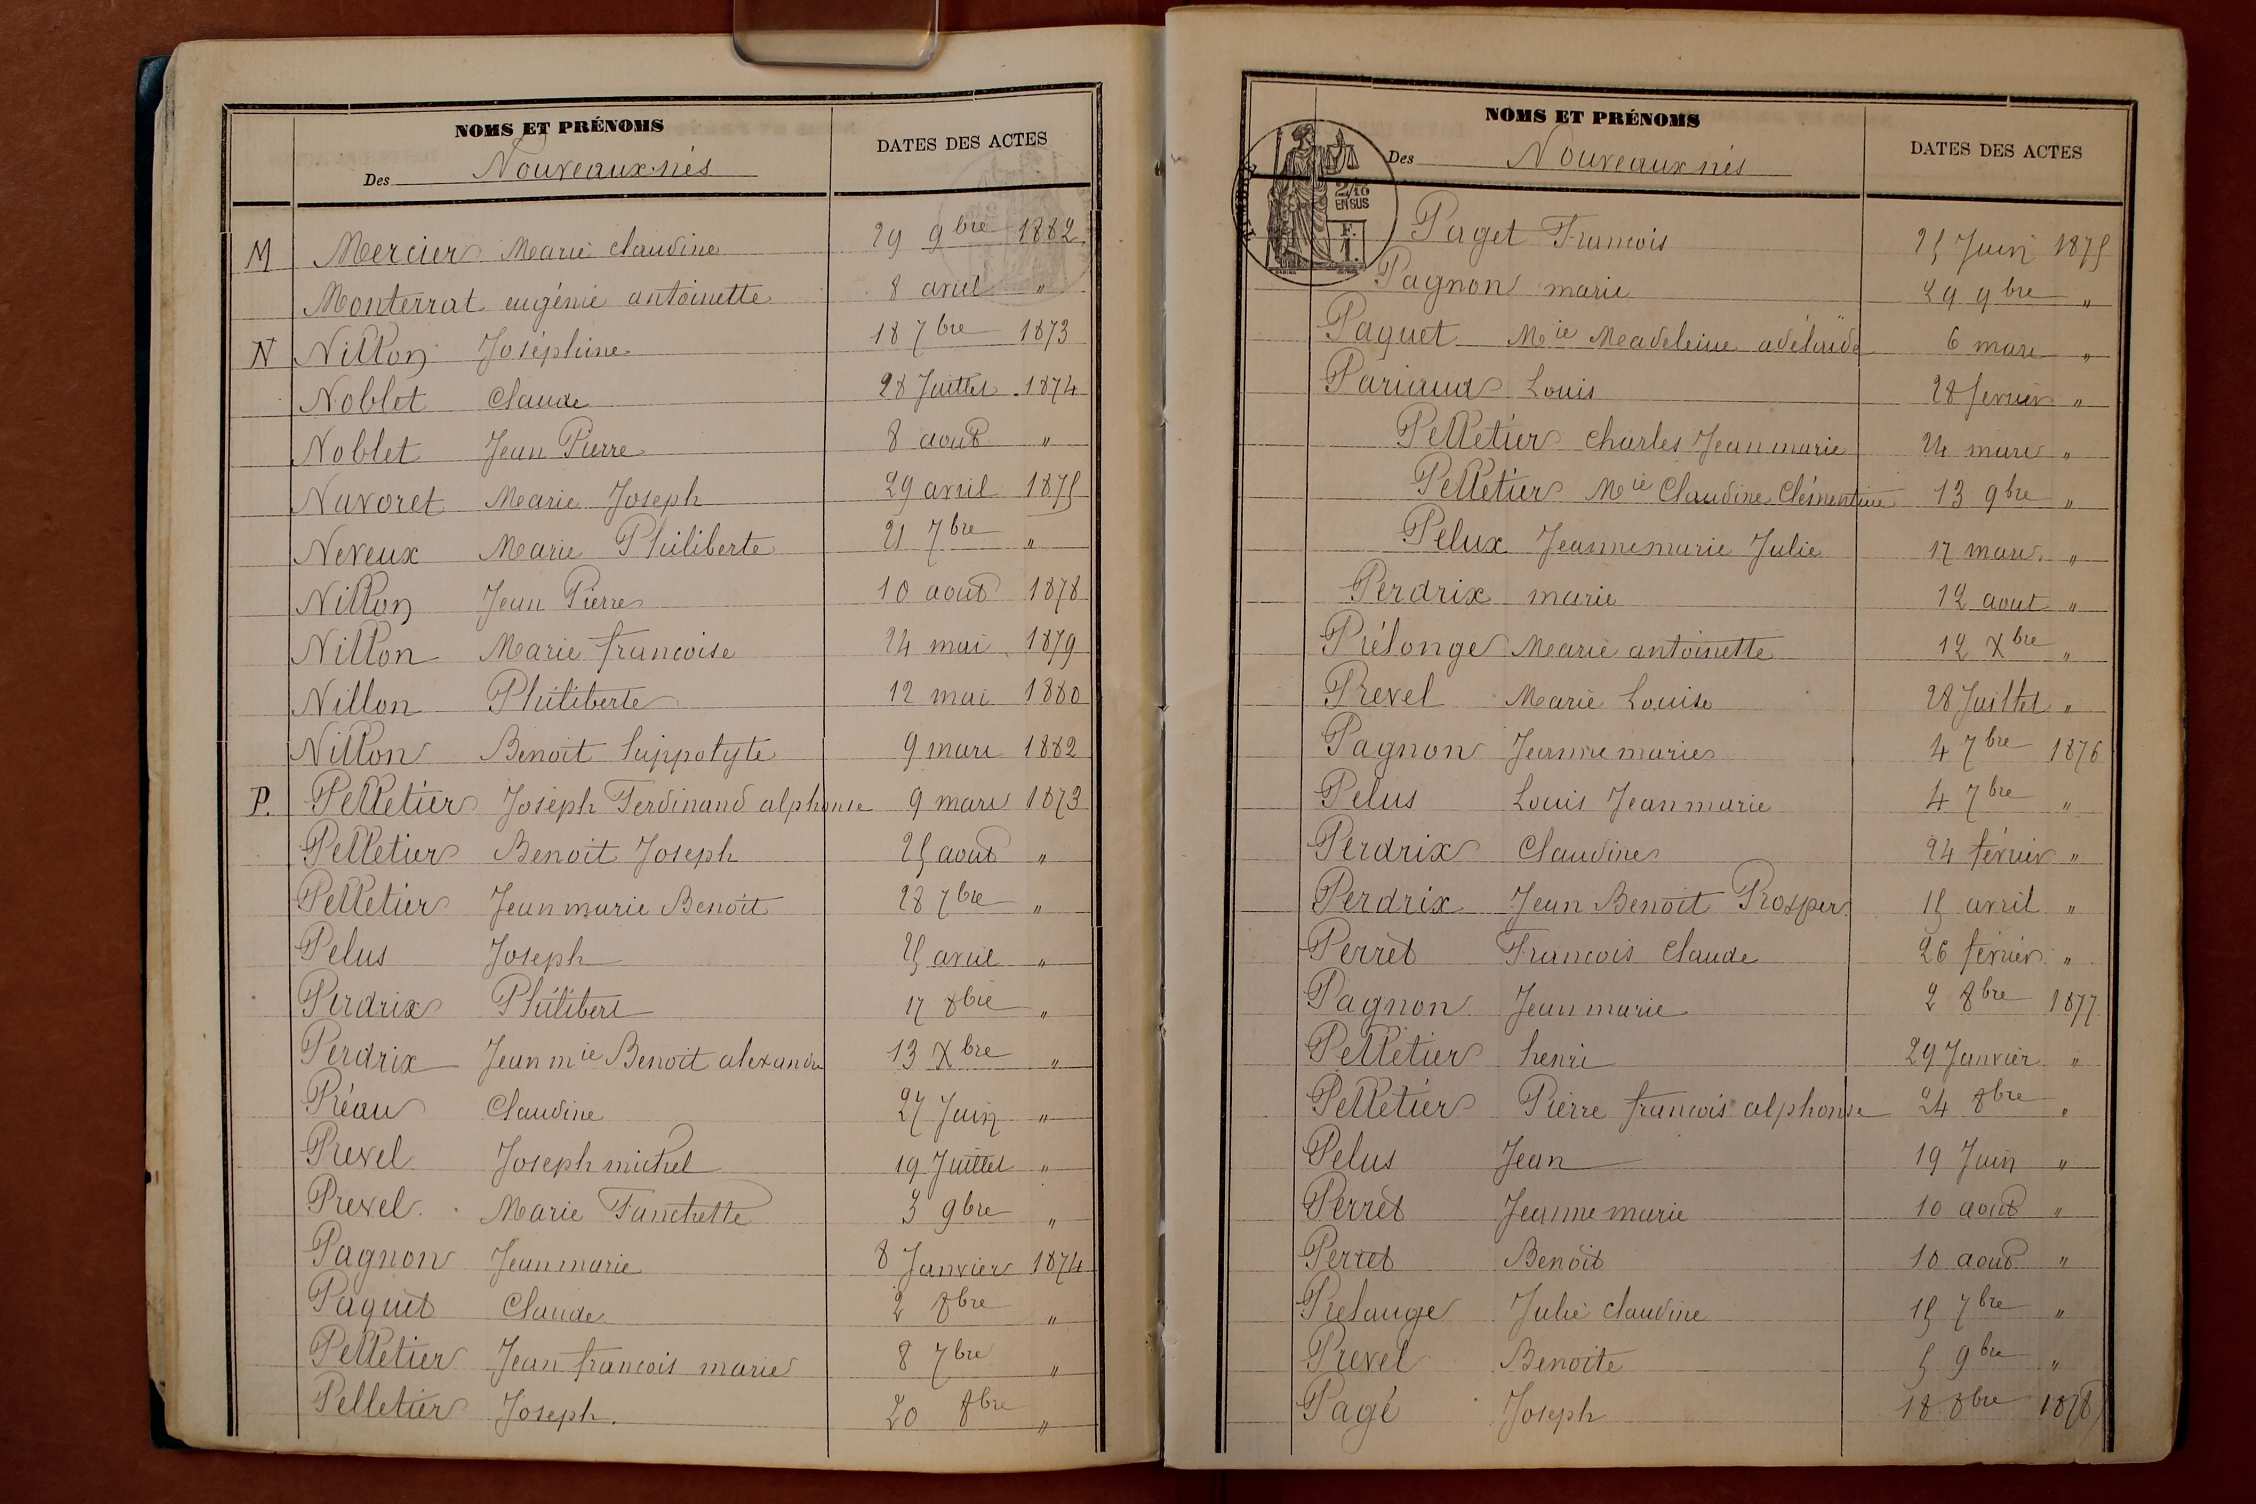 NOMS ET PRÉNOMS
DATES DES ACTES
Des Nouveaux-nés
M Mercier Marie Claudine 29 9bre 1882
Monterrat eugénie antoinette 8 avril "
N Nillon Joséphine 18 7bre 1873
Noblet Claude 28 Juillet 1874
Noblet Jean Pierre 8 aout "
Navoret Marie Joseph 29 avril 1875
Neveux Marie Philiberte 21 7bre "
Nillon Jean Pierre 10 aout 1878
Nillon Marie francoise 24 mai 1879
Nillon Philiberte 12 mai 1880
Nillon Benoit hippolyte 9 mars 1882
P. Pelletier Joseph Ferdinand alphonse 9 mars 1873
Pelletier Benoit Joseph 25 aout "
Pelletier Jean marie Benoit 28 7bre "
Pelus Joseph 25 avril "
Perdrix Philibert 17 8bre "
Perdrix Jean mie Benoit alexandre 13 Xbre "
Préau Claudine 27 Juin "
Prevel Joseph michel 19 Juillet "
Prevel Marie Fanchette 3 9bre "
Pagnon Jean marie 8 Janvier 1874
Paquet Claude 2 8bre "
Pelletier Jean francois marie 8 7bre "
Pelletier Joseph. 20 8bre "
NOMS ET PRÉNOMS
DATES DES ACTES
Des Nouveaux nés
2/10
EN SUS
F.
1.
Paget Francois 25 Juin 1875
Pagnon marie 29 9bre "
Paquet Mie Madeleine adélaïde 6 mars "
Pariaud Louis 28 fevrier "
Pelletier Charles Jean marie 24 mars "
Pelletier Mie Claudine Clémentine 13 9bre "
Pelux Jeanne marie Julie 17 mars "
Perdrix marie 12 aout "
Prélonge Marie antoinette 12 Xbre "
Prevel Marie Louise 28 Juillet "
Pagnon Jeanne marie 4 7bre 1876
Pelus Louis Jean marie 4 7bre "
Perdrix Claudine 24 février "
Perdrix Jean Benoit Prosper 15 avril "
Perret Francois Claude 26 février "
Pagnon Jean marie 2 8bre 1877
Pelletier henri 29 Janvier "
Pelletier Pierre francois alphonse 24 8bre "
Pelus Jean 19 Juin "
Perret Jeanne marie 10 aout "
Perret Benoit 10 aout "
Prelange Julie Claudine 15 7bre "
Prevel Benoite 5 9bre "
Pagé Joseph 18 8bre 1878